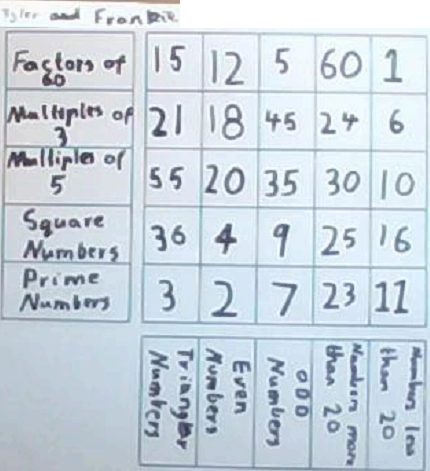 Tyler and Frankie
Factors of 60 15 12 5 60 1
Multiples of 3 21 18 45 24 6
Multiples of 5 55 20 35 30 10
Square Numbers 36 4 9 25 16
Prime Numbers 3 2 7 23 11
Triangular Numbers
Even Numbers
ODD Numbers
Numbers more than 20
Numbers less than 20